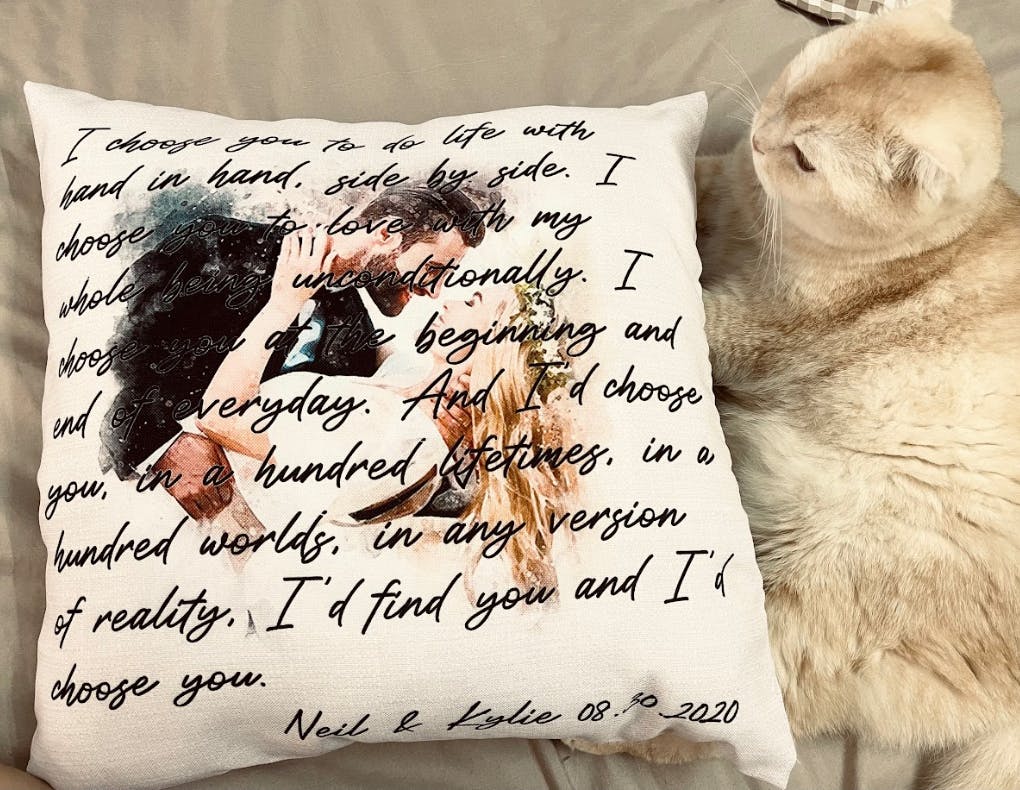 I choose you to do life with
hand in hand, side by side. I
choose you to love with my
whole being unconditionally. I
choose you at the beginning and
end of everyday. And I'd choose
you, in a hundred lifetimes, in a
hundred worlds, in any version
of reality, I'd find you and I'd
choose you.
Neil & Kylie 08.30.2020